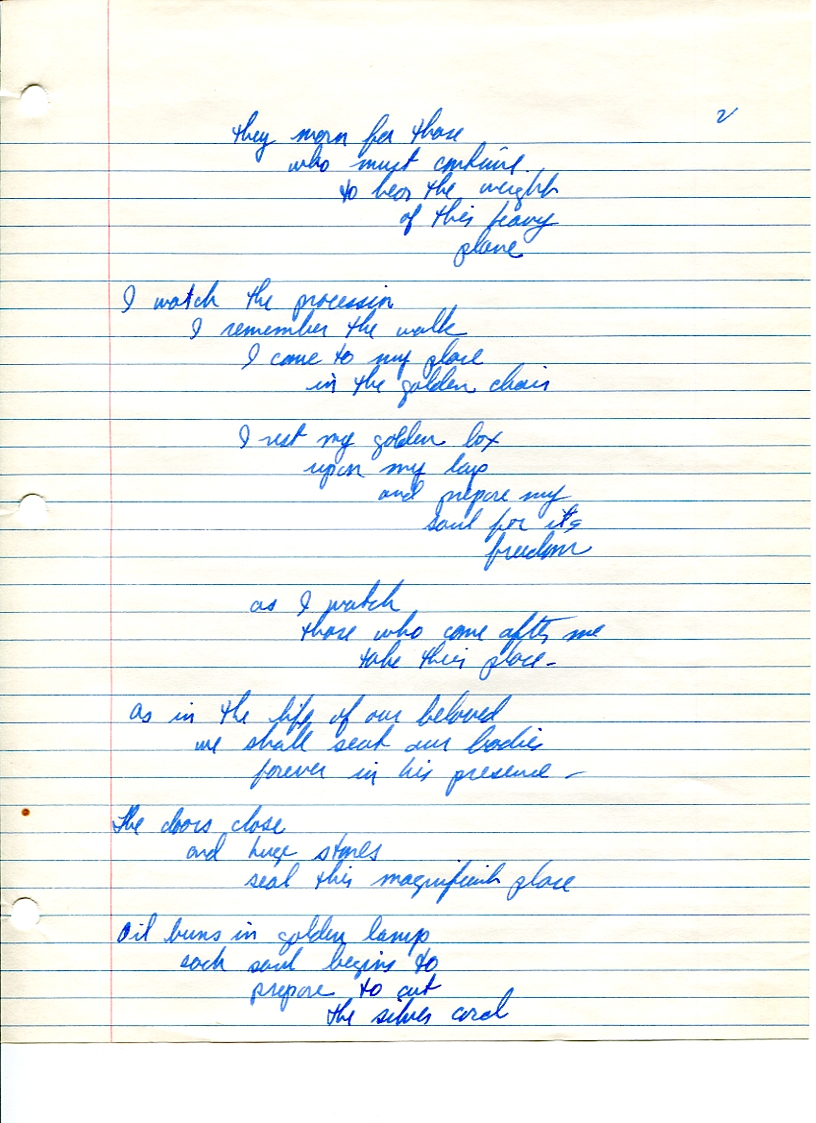 2
they morn for those
who must continue
to bear the weight
of this heavy
plane
I watch the procession
I remember the walk
I come to my place
in the golden chair
I rest my golden box
upon my lap
and prepare my
soul for its
freedom
as I watch
those who come after me
take their place-
as in the life of our beloved
we shall seat our bodies
forever in his presence -
The doors close
and huge stones
seal this magnificent place
Oil burns in golden lamp
each soul begins to
prepare to cut
the silver cord